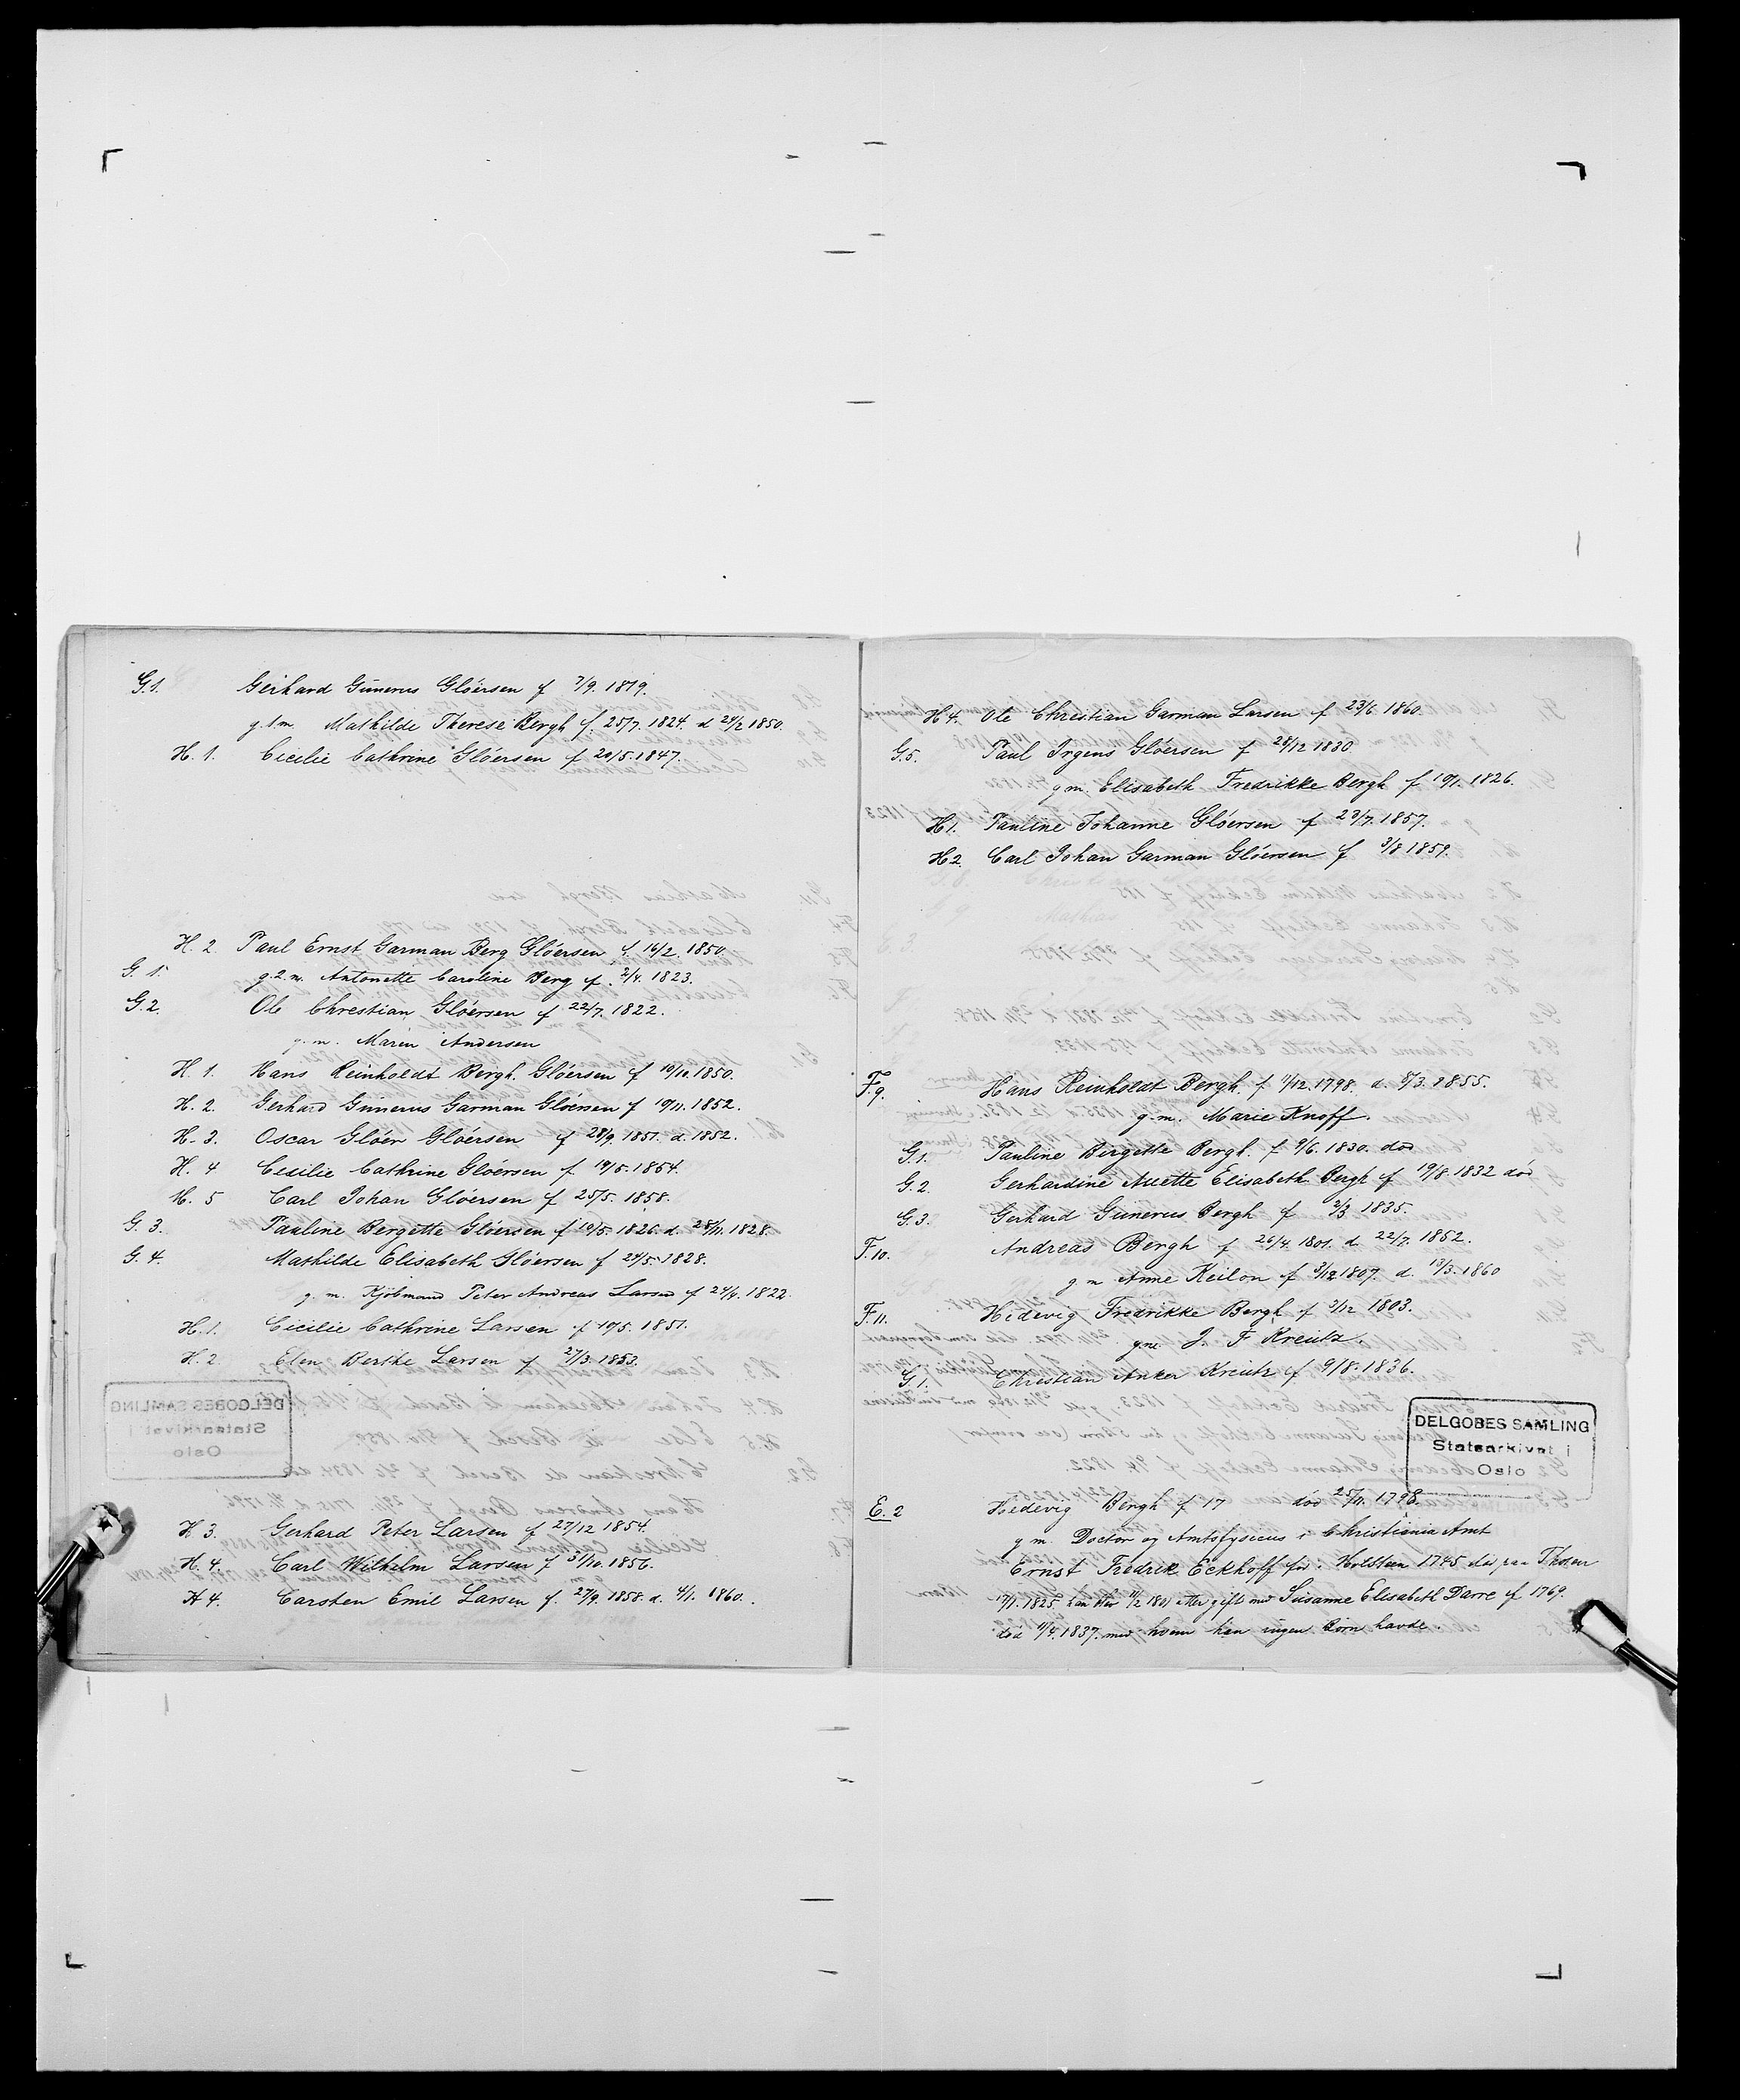 G.1. Gerhard Günerus Glöersen f 7/9. 1819.
g.1m Mathilde Therese Bergh f. 25/7. 1824. d 24/2 1850.
H. 1. Cicilie Cathrine Glöersen f 20/5. 1847.
H. 2 Paul Ernst Garman Berg Glöersen f. 16/2. 1850.
G. 1. g.2.m. Antonette Caroline Berg f. 2/4. 1823.
G.2. Ole Chrestian Glöersen f 22/7. 1822.
g. m. Maren Andersen
H. 1. Hans Reinholdt Bergh. Glöersen f 10/10. 1850.
H. 2. Gerhard Günnerus Garman Glöersen f 10/11. 1852.
H. 3. Oscar Glöer Glöersen f 28/9. 1851. d. 1852.
H. 4 Cecilie Cathrine Glöersen f 19/5. 1854.
H. 5 Carl Johan Glöersen f 25/5. 1858.
G. 3. Pauline Bergette Glöersen f 10/5. 1826. d. 28/11. 1828.
G. 4. Mathilde Elisabeth Glöersen f 24/5. 1828.
g. m. Kjöbmand Peter Andreas Larsen f 24/4. 1822.
H. 1. Cicilie Cathrine Larsen f 10/5. 1851.
H. 2. Elen Berthe Larsen f 27/3. 1853.
H 3. Gerhard Peter Larsen f 27/12 1854.
H. 4. Carl Wilhelm Larsen f 31/10. 1856.
H 4. Carsten Emil Larsen f. 27/9. 1858. d. 4/1. 1860.
H 4. Ole Chrestian Garman Larsen f 23/6. 1860.
G.5. Paul Irgens Glöersen f 28/12 1830.
g m. Elisabeth Fredrikke Bergh f 10/1. 1826.
H1. Pauline Johanne Glöersen f 23/7. 1857.
H2. Carl Johan Garman Glöersen f 3/8 1859.
F.9. Hans Reinholdt Bergh. f 11/12. 1798. d. 8/3. 1855.
g. m. Marie Knoff.
G.1. Pauline Birgette Bergh. f 9/6. 1830. død
G.2. Gerhardine Anette Elisabeth Bergh f 19/8. 1832 død
G.3. Gerhard Günerus Bergh f 2/3 1835.
F.10. Andreas Bergh f 26/4. 1801. d. 22/7. 1852.
g m Anne Keilon f 3/12 1807. d. 13/3. 1860
F.11. Hedevig Fredrikke Bergh f 3/12 1803.
gm J. F Kreütz.
G 1. Chrestian Anker Kreütz f 9/8. 1836.
DELGOBES SAMLING
Statsarkivet i
Oslo
E. 2 Hedevig Bergh f 17 død 25/11. 1798.
g m. Doctor og Amtsfysicus i Christiania Amt
Ernst Fredrik Eckhoff fød i Holsteen 1745 død paa Thoten
17/1. 1825. han blev 11/2 1801 atter gift med Susanne Elisabeth Darre f 1769.
død 11/4. 1837. med hvem han ingen Börn havde.